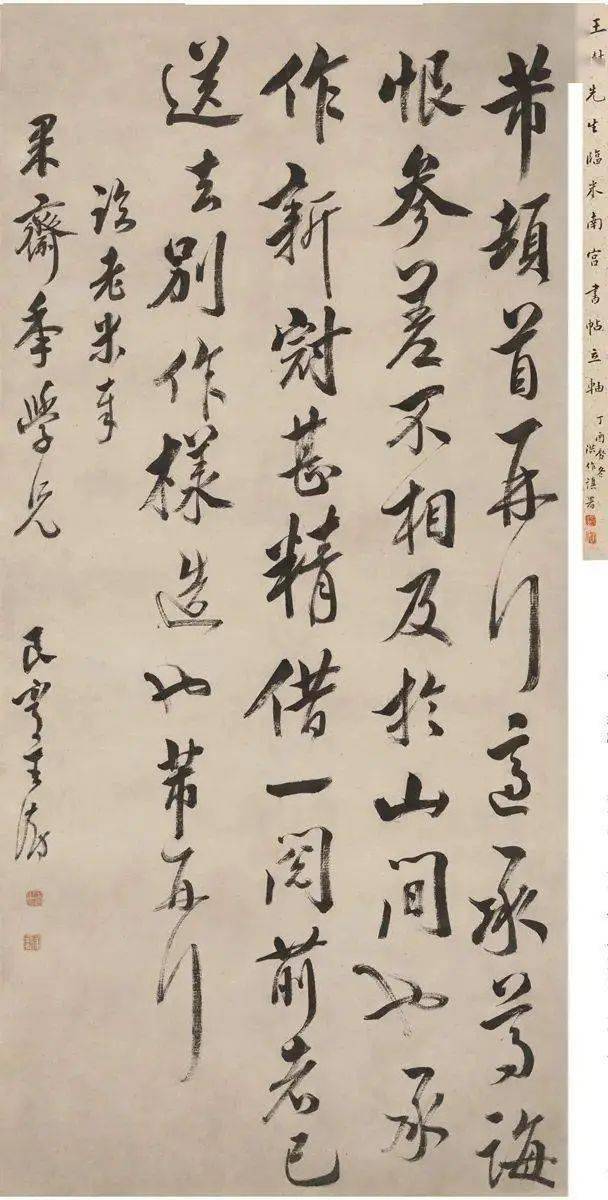 王澍先生臨米南宮書帖立軸
丁酉冬
洪作謹署
芾頓首再拜適承尊誨
恨參差不相及於山間也承
作新冠甚精借一閱前者已
送去別作樣造也芾再拜
臨老米奉
果齋年學兄 良常王澍